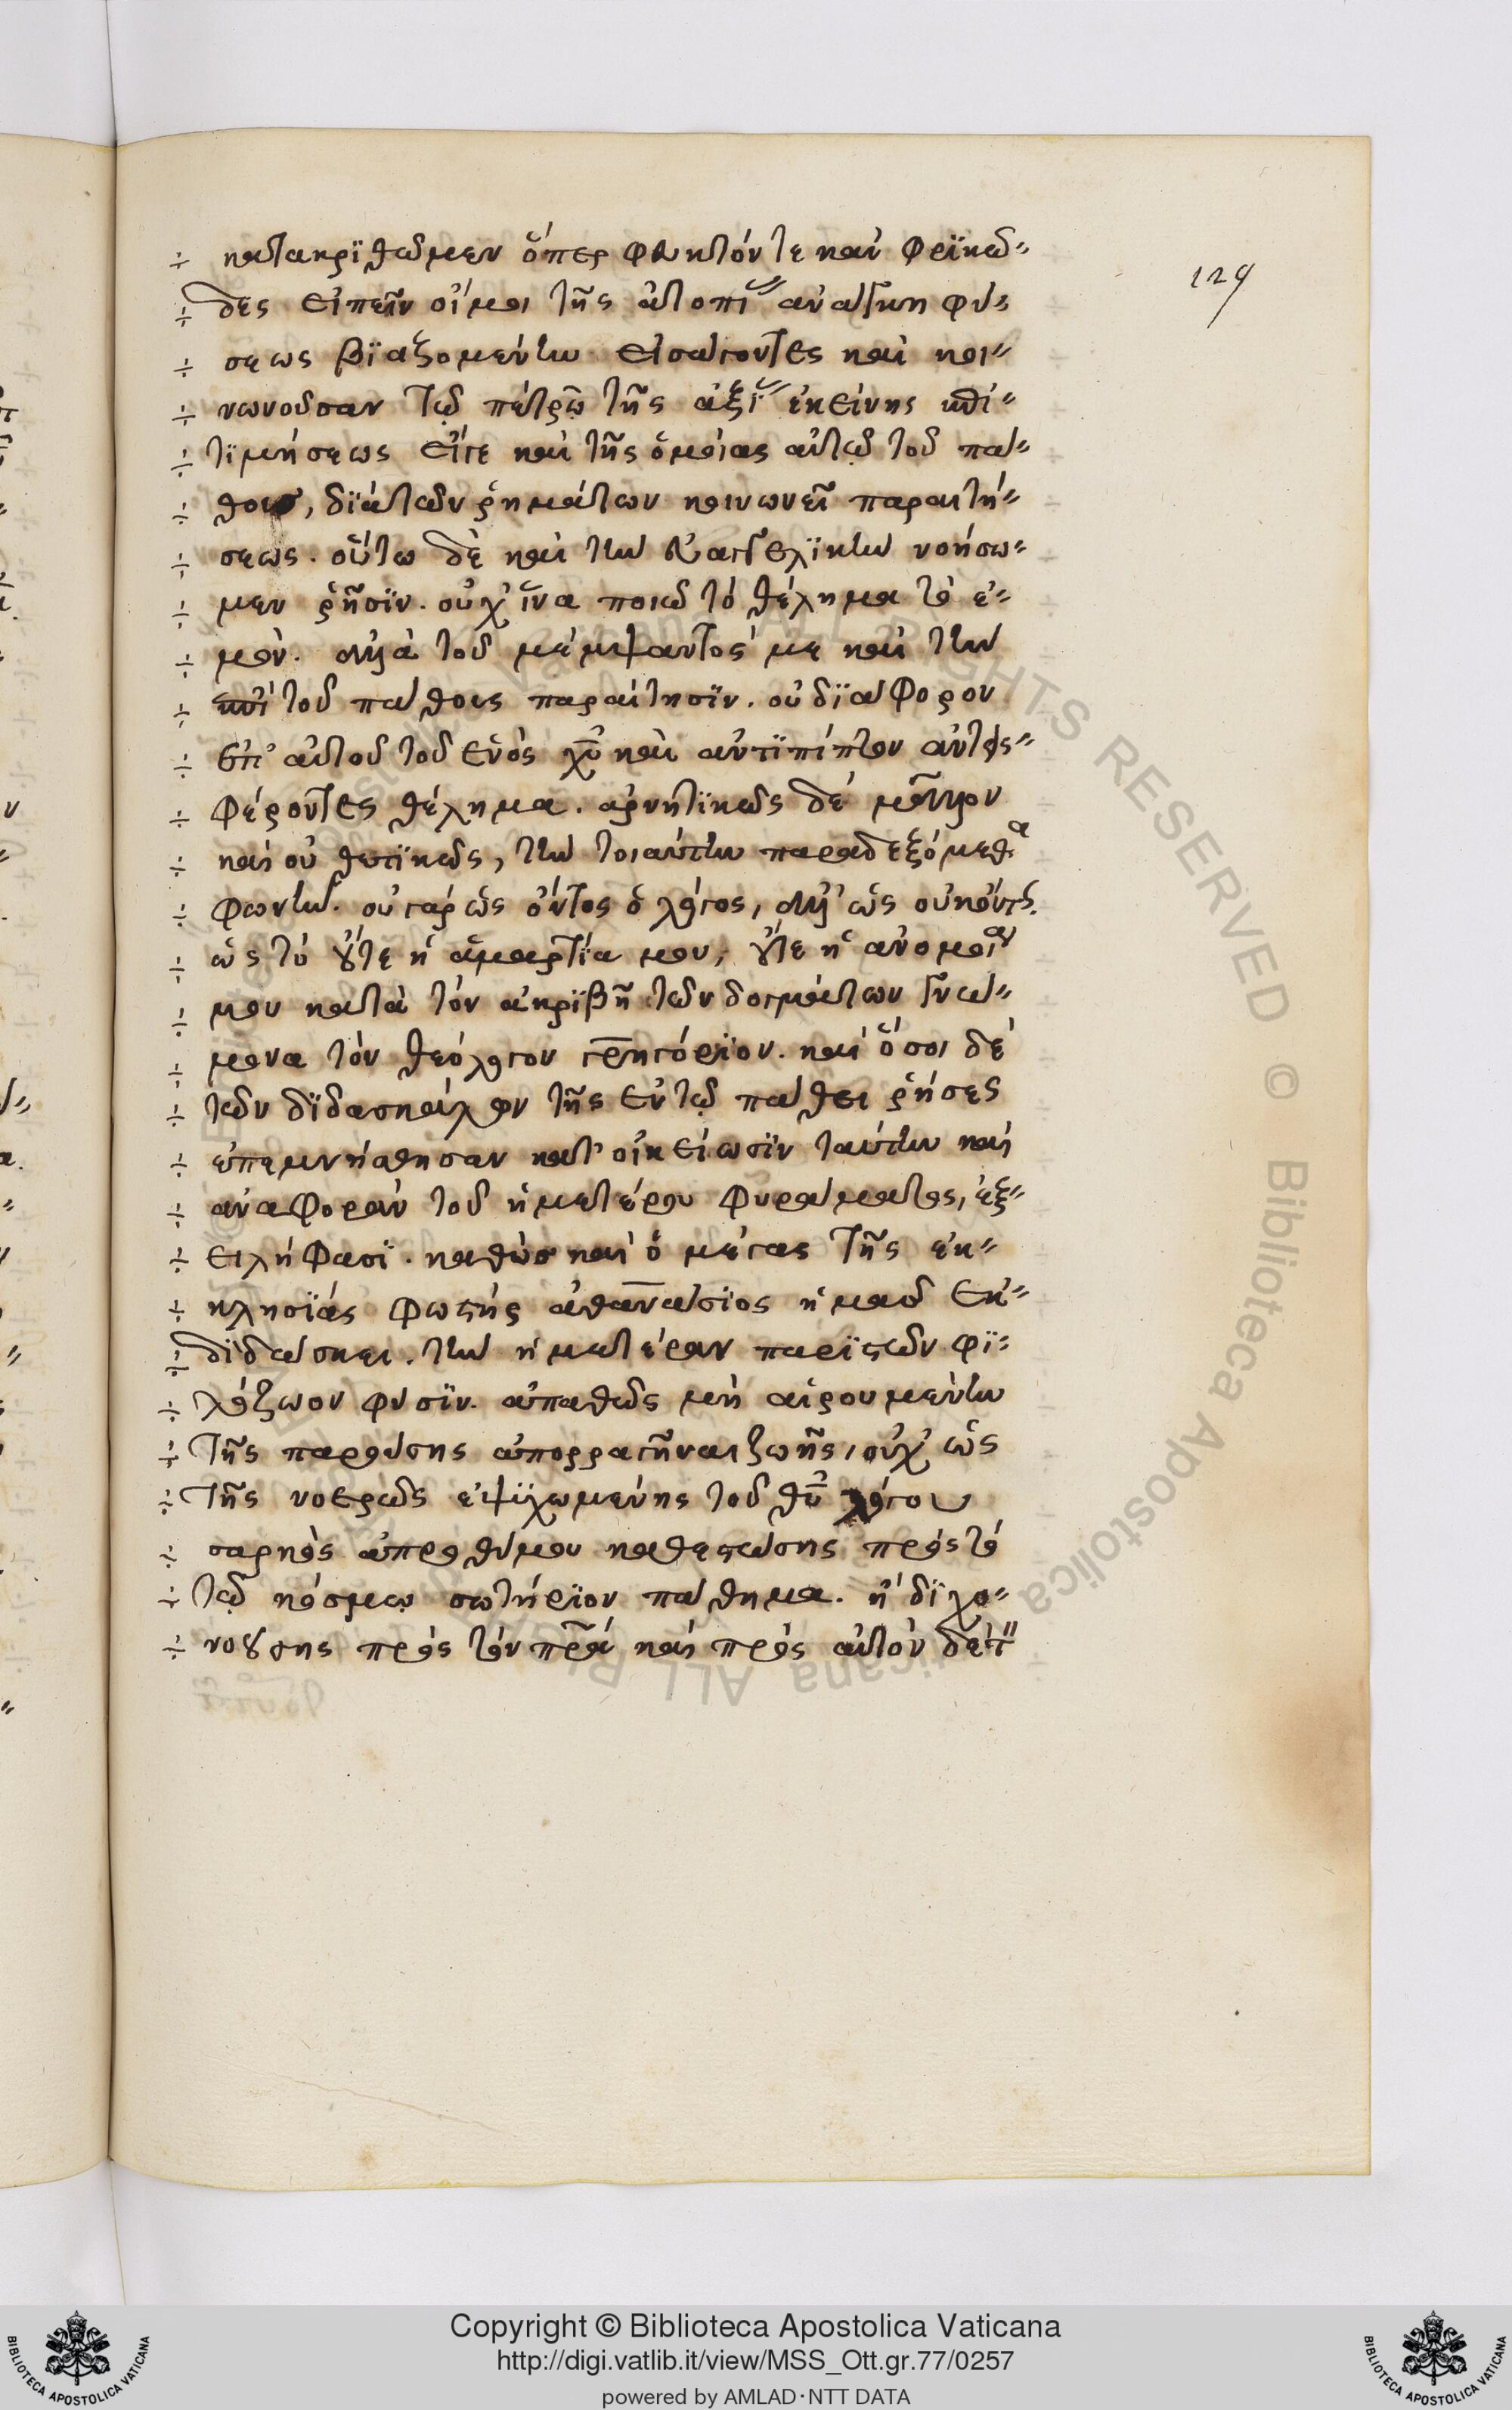 129
÷ κατακριθῶμεν ὅπερ φευκτόν τε καὶ φρικῶ-
÷ δες εἰπεῖν οἴμοι τῆς ἀτοπί(ας) ἀνάγκη φύ-
÷ σεως βϊαζομένην εἰσάγοντες καὶ κοι-
÷ νωνοῦσαν τῷ πέτρῳ τῆς ἀξί(ας) ἐκείνης ἐπι-
÷ τϊμήσεως εἴγε καὶ τῆς ὁμοίας αὐτῷ τοῦ πά-
÷ θους, δϊὰ τῶν ῥημάτων κοινωνεῖ παραιτή-
÷ σεως. οὕτω δὲ καὶ τὴν εὐαγγελϊκὴν νοήσω-
÷ μεν ῥῆσϊν. οὐχ' ἵνα ποιῶ τὸ θέλημα τὸ ἐ-
÷ μόν. ἀλλὰ τοῦ πέμψαντός με καὶ τὴν
÷ ἐπὶ τοῦ πάθους παραίτησϊν. οὐ δϊάφορον
÷ ἐπ' αὐτοῦ τοῦ ἑνὸς χῦ καὶ ἀντϊπίπτον ἀντϊς-
÷ φέροντες θέλημα. ἀρνητϊκῶς δὲ μᾶλλον
÷ καὶ οὐ θετϊκῶς, τὴν τοιαύτην παραδεξόμεθα
÷ φωνήν. οὐ γὰρ ὡς ὄντος ὁ λόγος, ἀλλ' ὡς οὐκ ὄντος.
÷ ὡς τὸ οὔτε ἡ ἁμαρτία μου, οὔτε ἡ ἀνομία
÷ μου κατὰ τὸν ἀκρϊβῆ τῶν δογμάτων γνώ-
÷ μονα τὸν θεόλογον γρηγόρϊον. καὶ ὅσοι δὲ
÷ τῶν δϊδασκάλων τῆς ἐν τῷ πάθει ῥήσεως
÷ ἐπεμνήσθησαν κατ' οἰκείωσϊν ταύτην καὶ
÷ ἀναφορὰν τοῦ ἡμετέρου φυράματος, ἐξ-
÷ ειλήφασϊ. καθὼς καὶ ὁ μέγας τῆς ἐκ-
÷ κλησϊάς φωστὴρ ἀθανάσϊος ἡμᾶς ἐκ-
÷ διδάσκει. τὴν ἡμετέραν παρϊστῶν φϊ-
÷ λόζωον φύσϊν. ἀπαθῶς μὴ αἱρουμένην
÷ τῆς παρούσης ἀπορραγῆναι ζωῆς, οὐχ' ὡς
÷ τῆς νοερῶς ἐψϋχωμένης τοῦ θῦ λόγου
÷ σαρκὸς ἀπροθύμου καθεστώσης πρὸς τὸ
÷ τῷ κόσμῳ σωτήρϊον πάθημα. ἢ δϊχο-
÷ νούσης πρὸς τὸν πρα καὶ πρὸς αὐτὸν δὲ τ-
Copyright © Biblioteca Apostolica Vaticana
http://digi.vatlib.it/view/MSS_Ott.gr.77/0257
powered by AMLAD·NTT DATA